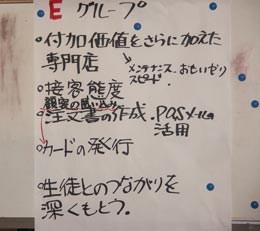 E グループ
・付加価値をさらに加えた
専門店
→メンテナンス おもいやり
スピード
・接客態度
顧客の囲い込み
・注文書の作成・POSメールの
活用
・カードの発行
・生徒とのつながりを
深くもとう。